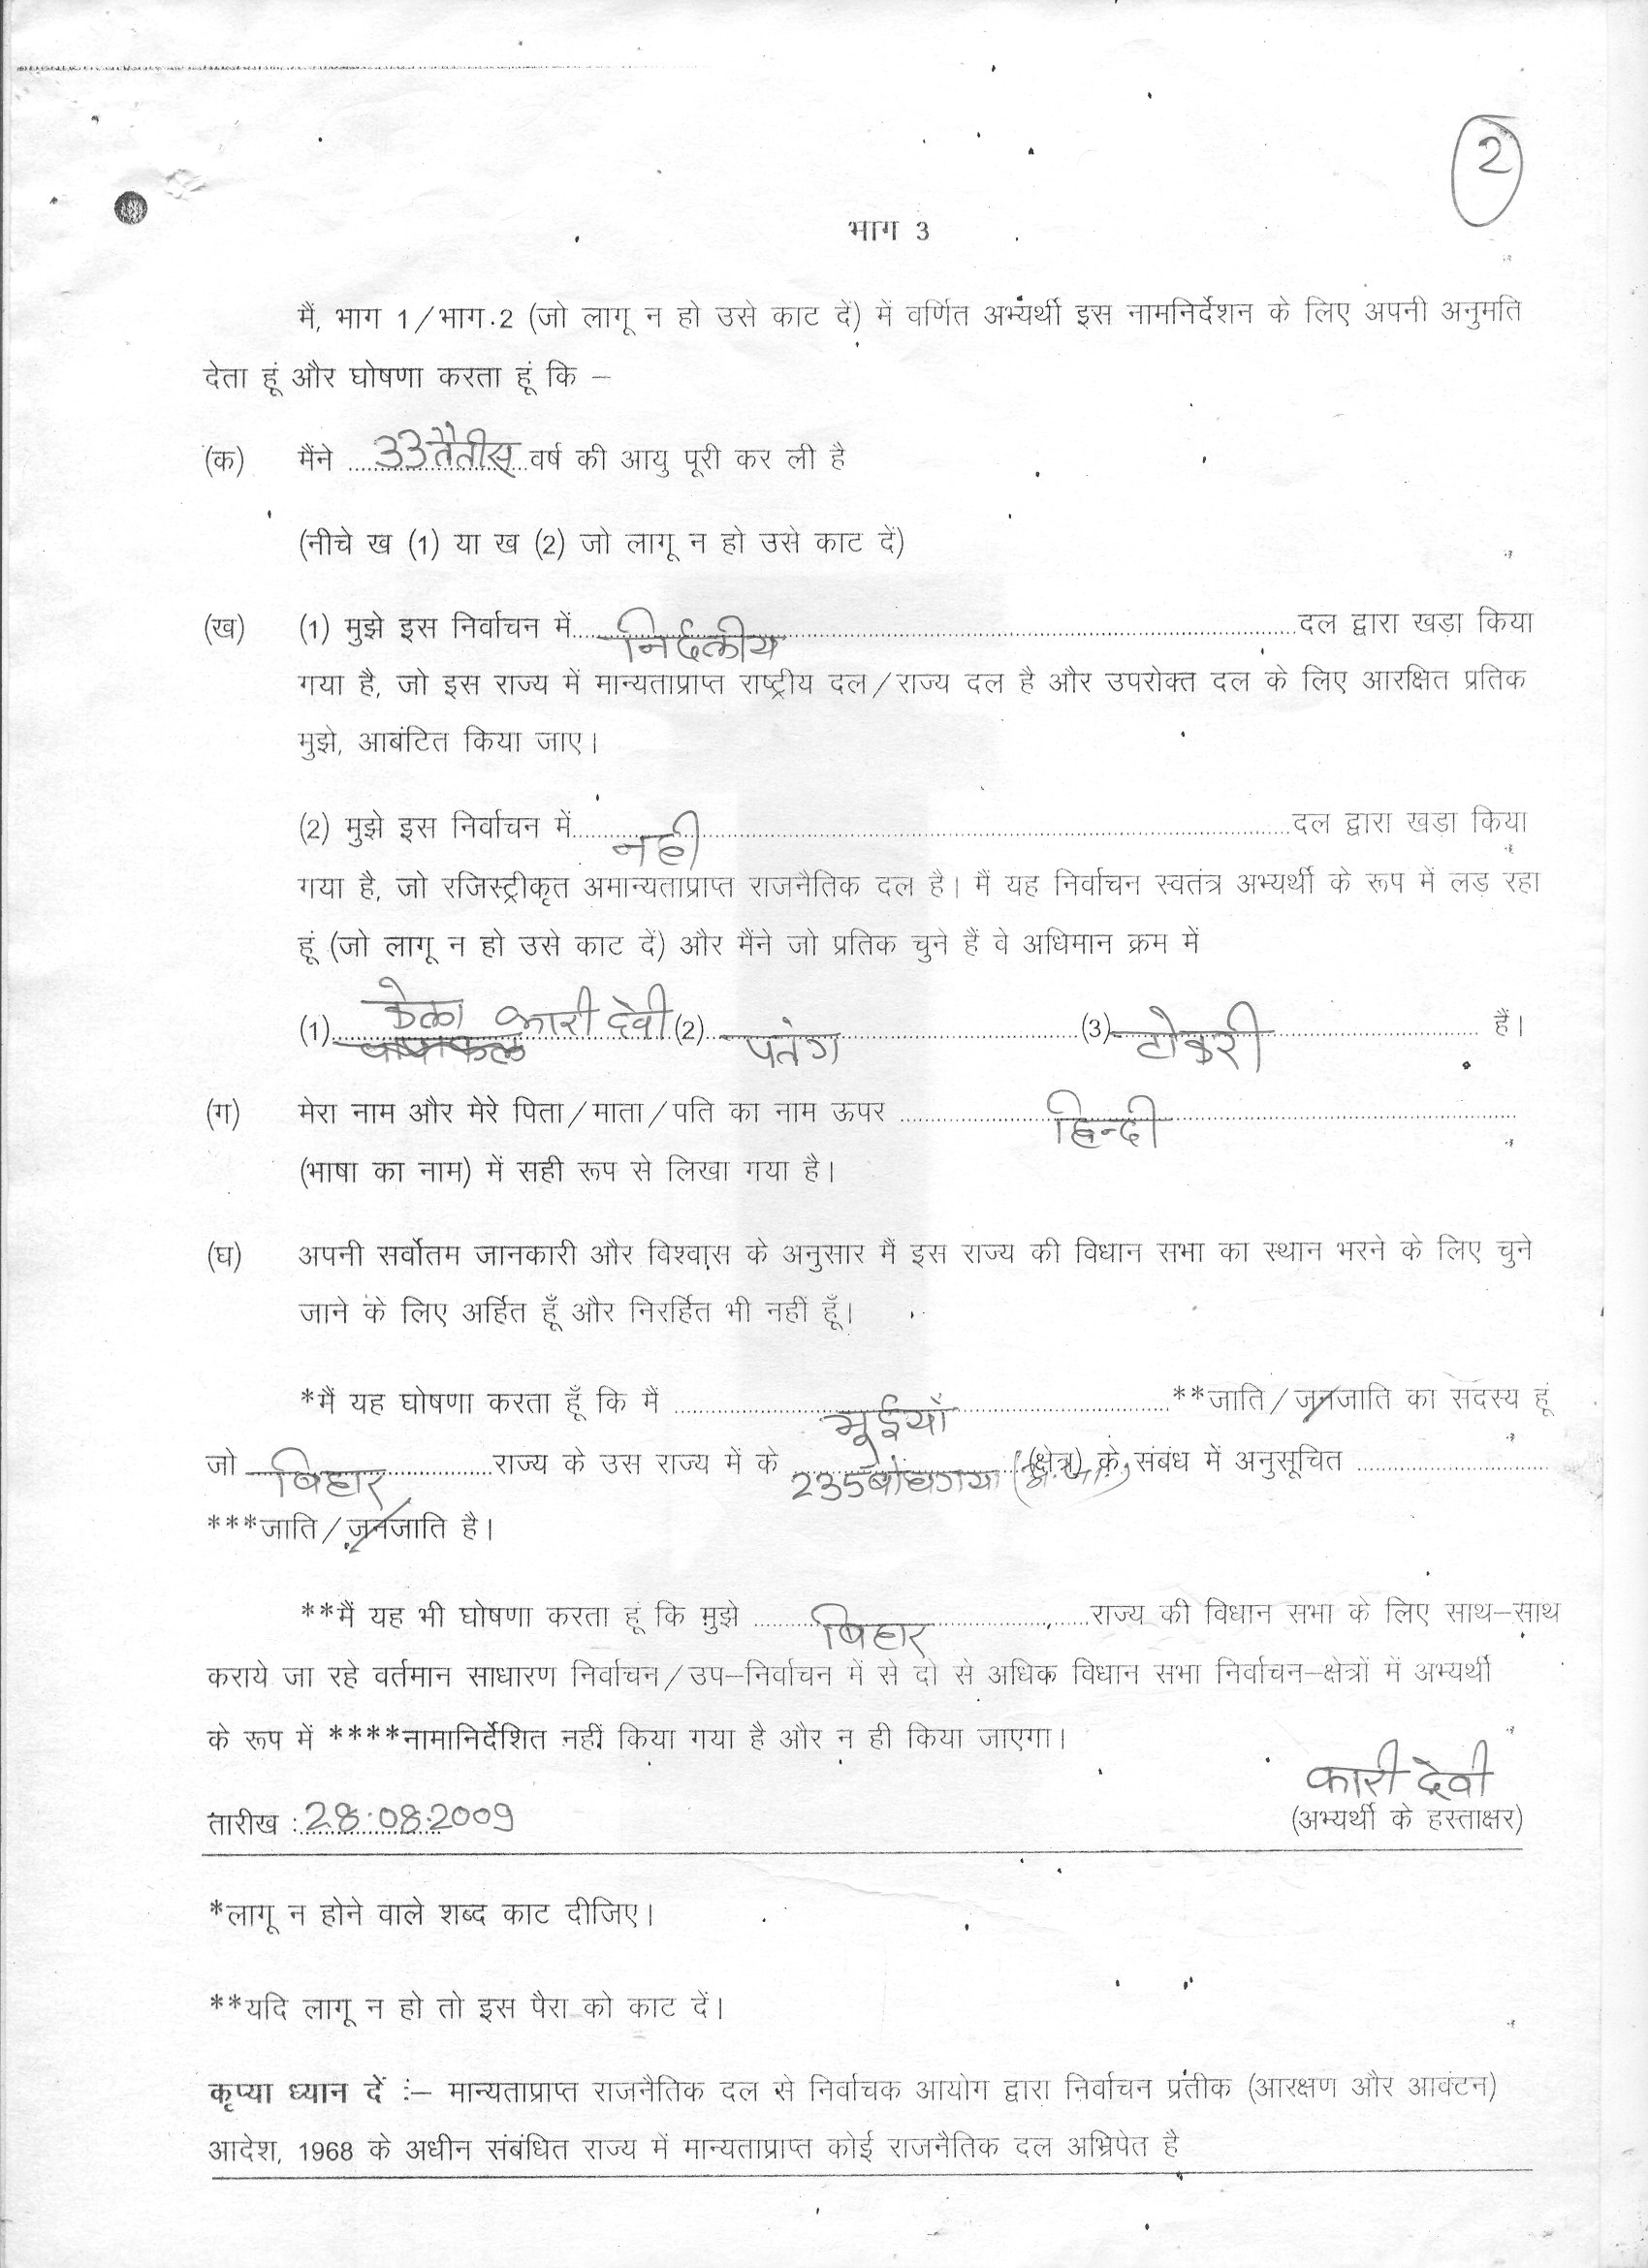 2
भाग 3
मैं, भाग 1/भाग.2 (जो लागू न हो उसे काट दें) में वर्णित अभ्यर्थी इस नामनिर्देशन के लिए अपनी अनुमति
देता हूं और घोषणा करता हूं कि –
(क) मैंने 33 तैतीस वर्ष की आयु पूरी कर ली है
(नीचे ख (1) या ख (2) जो लागू न हो उसे काट दें)
(ख) (1) मुझे इस निर्वाचन में निर्दलीय दल द्वारा खड़ा किया
गया है, जो इस राज्य में मान्यताप्राप्त राष्ट्रीय दल/राज्य दल है और उपरोक्त दल के लिए आरक्षित प्रतिक
मुझे, आबंटित किया जाए।
(2) मुझे इस निर्वाचन में नही दल द्वारा खड़ा किया
गया है, जो रजिस्ट्रीकृत अमान्यताप्राप्त राजनैतिक दल है। मैं यह निर्वाचन स्वतंत्र अभ्यर्थी के रूप में लड़ रहा
हूं (जो लागू न हो उसे काट दें) और मैंने जो प्रतिक चुने हैं वे अधिमान क्रम में
(1) केला कारी देवी (2) पतंग (3) टोकरी हैं।
(ग) मेरा नाम और मेरे पिता/माता/पति का नाम ऊपर हिन्दी
(भाषा का नाम) में सही रूप से लिखा गया है।
(घ) अपनी सर्वोतम जानकारी और विश्वास के अनुसार मैं इस राज्य की विधान सभा का स्थान भरने के लिए चुने
जाने के लिए अर्हित हूँ और निरर्हित भी नहीं हूँ।
*मैं यह घोषणा करता हूँ कि मैं भूईयाँ **जाति/जनजाति का सदस्य हूं
जो बिहार राज्य के उस राज्य में के 235 बोधगया (क्षेत्र) के संबंध में अनुसूचित
***जाति/जनजाति है।
**मैं यह भी घोषणा करता हूं कि मुझे बिहार राज्य की विधान सभा के लिए साथ–साथ
कराये जा रहे वर्तमान साधारण निर्वाचन/उप–निर्वाचन में से दो से अधिक विधान सभा निर्वाचन–क्षेत्रों में अभ्यर्थी
के रूप में ****नामानिर्देशित नहीं किया गया है और न ही किया जाएगा।
कारी देवी
तारीख : 28.08.2009 (अभ्यर्थी के हस्ताक्षर)
*लागू न होने वाले शब्द काट दीजिए।
**यदि लागू न हो तो इस पैरा को काट दें।
कृप्या ध्यान दें :– मान्यताप्राप्त राजनैतिक दल से निर्वाचक आयोग द्वारा निर्वाचन प्रतीक (आरक्षण और आवंटन)
आदेश, 1968 के अधीन संबंधित राज्य में मान्यताप्राप्त कोई राजनैतिक दल अभिप्रेत है